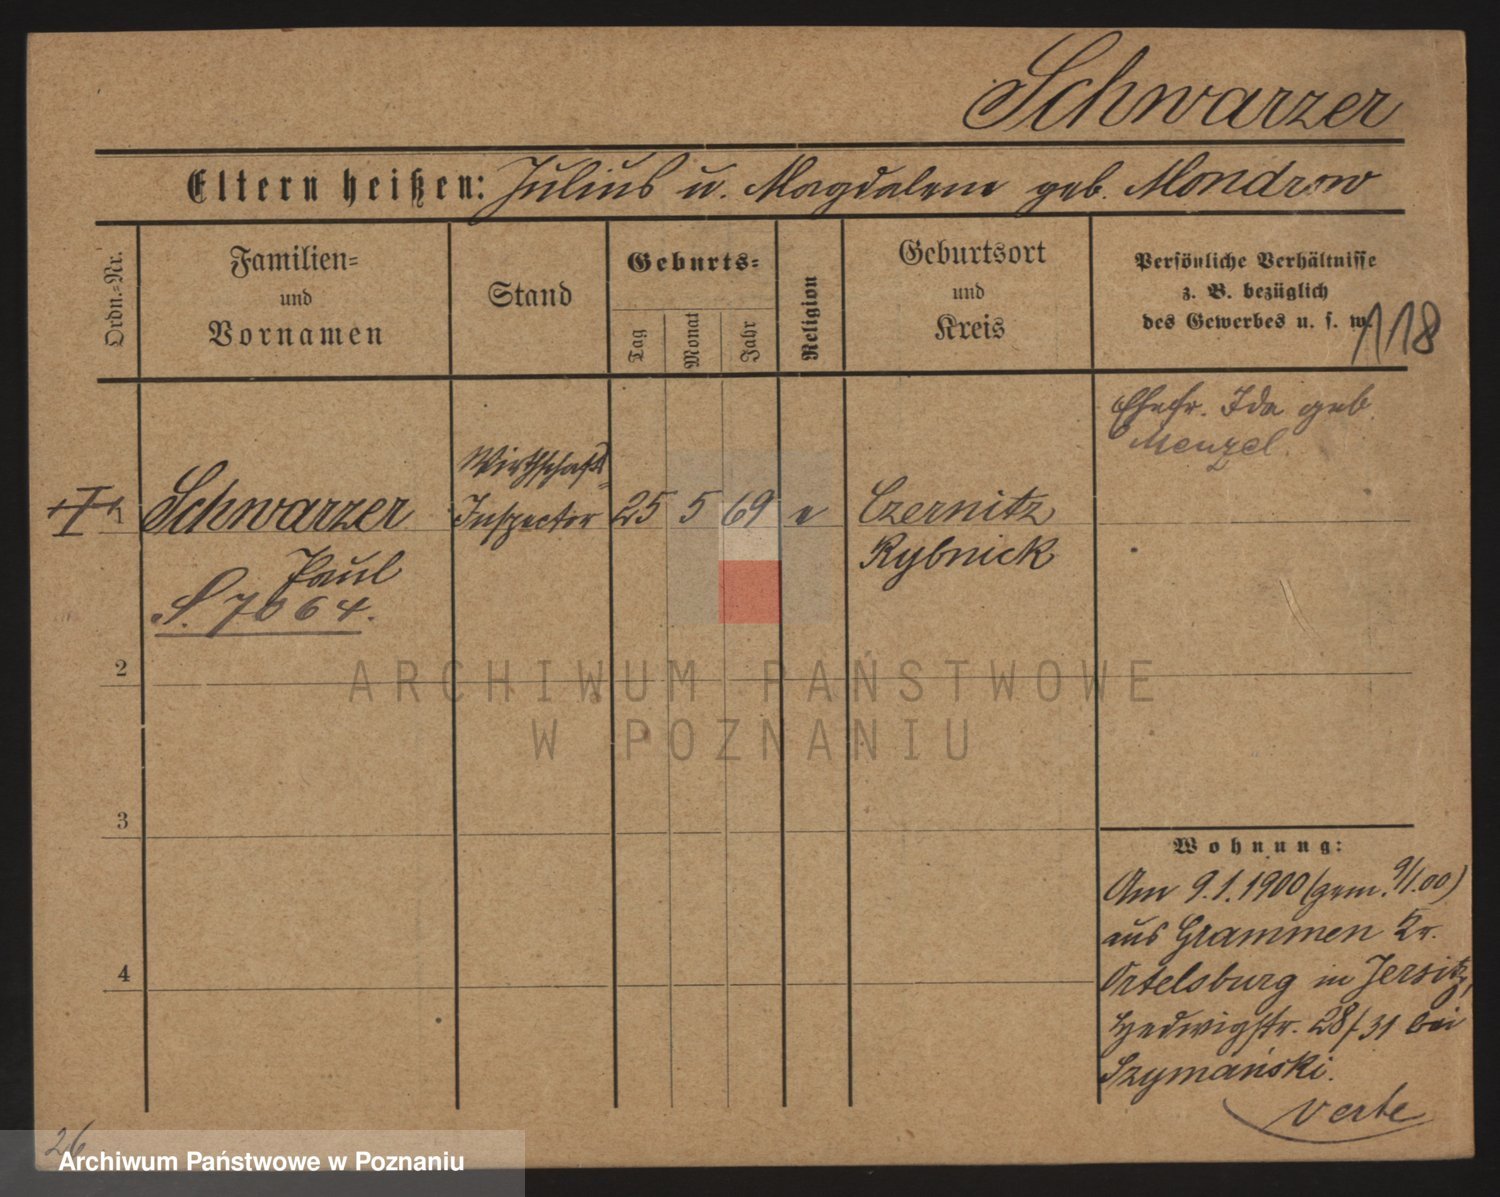 Schwarzer
Eltern heißen: Julius u. Magdalene geb. Mondrow
Ordn.=Nr.
Familien=
und
Vornamen
Stand
Geburts=
Tag
Monat
Jahr
Religion
Geburtsort
und
Kreis
Persönliche Verhältnisse
z. B. bezüglich
des Gewerbes u. s. w.
118
Ehefr. Ida geb.
Menzel.
1
Schwarzer
Paul
S. 7064.
Wirthschafts=
Inspector
25 5 69 e
Czernitz
Rybnick
2
3
4
Wohnung:
Am 9.1.1900 (gem. 9/1.00)
aus Grammen Kr.
Ortelsburg in Jersitz,
Hedwigstr. 28/31 bei
Szymański.
verte
26
ARCHIWUM PAŃSTWOWE
W POZNANIU
Archiwum Państwowe w Poznaniu